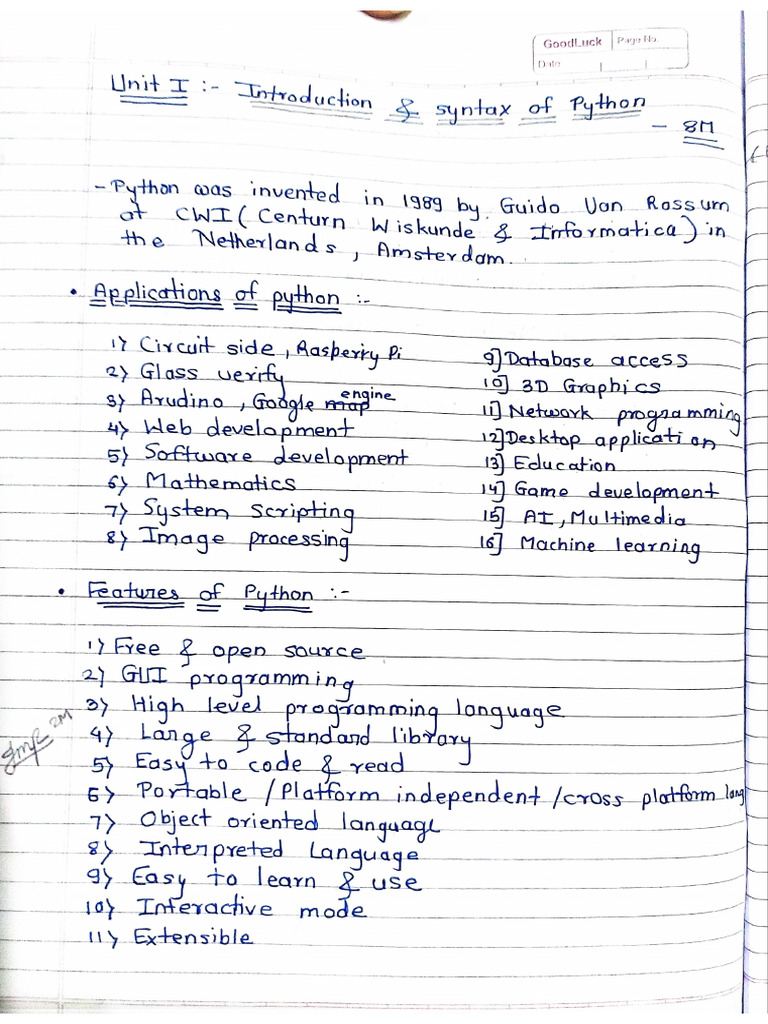 GoodLuck Page No.
Date
Unit I :- Introduction & syntax of Python
- 8M
- Python was invented in 1989 by Guido Van Rossum
at CWI ( Centurn Wiskunde & Informatica) in
the Netherlands , Amsterdam.
• Applications of python :-
1) Circuit side , Rasperry Pi
2) Glass verify
3) Arudino , Google map engine
4) Web development
5) Software development
6) Mathematics
7) System Scripting
8) Image processing
9] Database access
10] 3D Graphics
11] Network programming
12] Desktop application
13] Education
14] Game development
15] AI , Multimedia
16] Machine learning
• Features of Python :-
1) Free & open source
2) GUI programming
3) High level programming language
4) Large & standard library
5) Easy to code & read
6) Portable / Platform independent / cross platform lang
7) Object oriented language
8) Interpreted Language
9) Easy to learn & use
10) Interactive mode
11) Extensible
Imp 2M